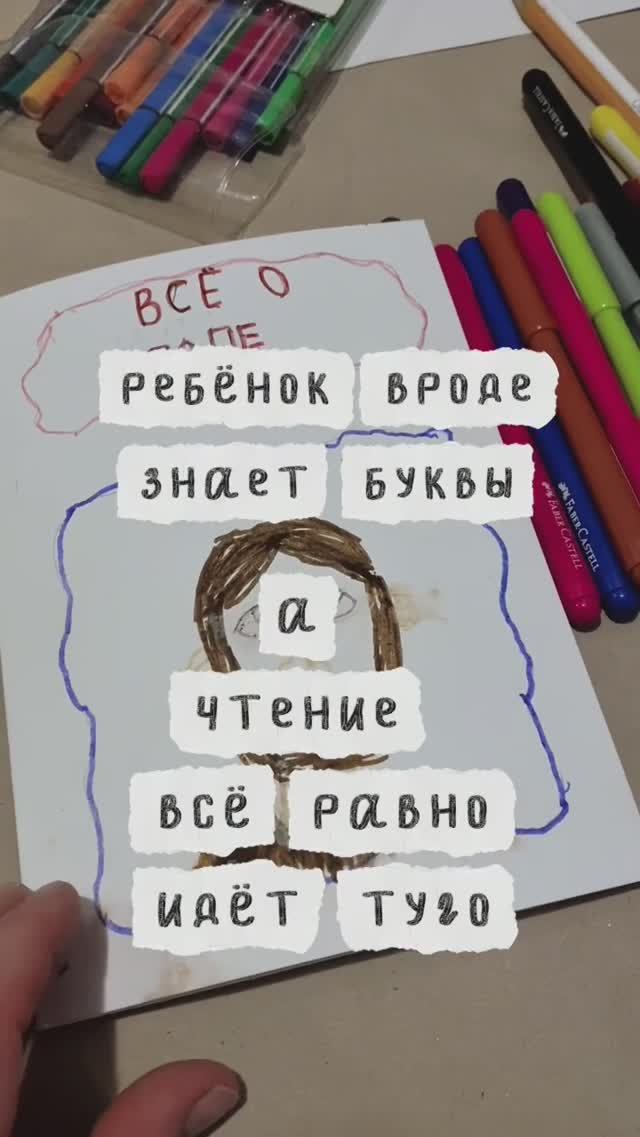 ВСЁ О
РЕБЁНОК ВРОДЕ
ЗНАЕТ БУКВЫ
а
ЧТЕНИЕ
ВСЁ РАВНО
ИДЁТ ТУГО
FABER CASTELL
FABER CASTELL